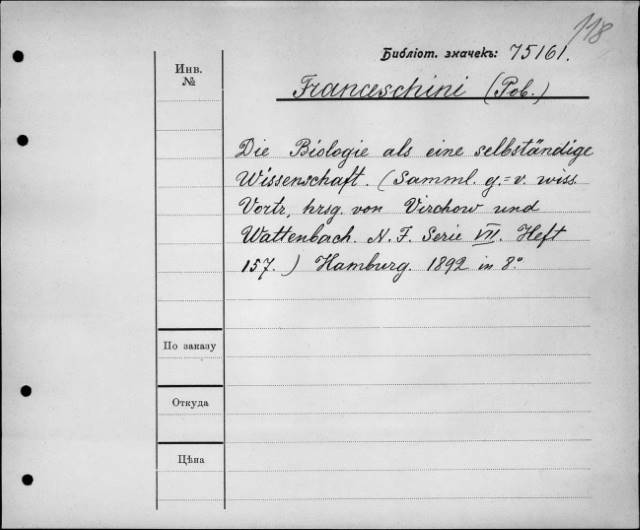 118
Библіот. значекъ: 75161.
Инв.
№
Franceschini (Rob.)
Die Biologie als eine selbständige
Wissenschaft. (Samml. g.=v. wiss.
Vortr., hrsg. von Virchow und
Wattenbach. N. F. Serie VII. Heft
157.) Hamburg. 1892 in 8°
По заказу
Откуда
Цѣна